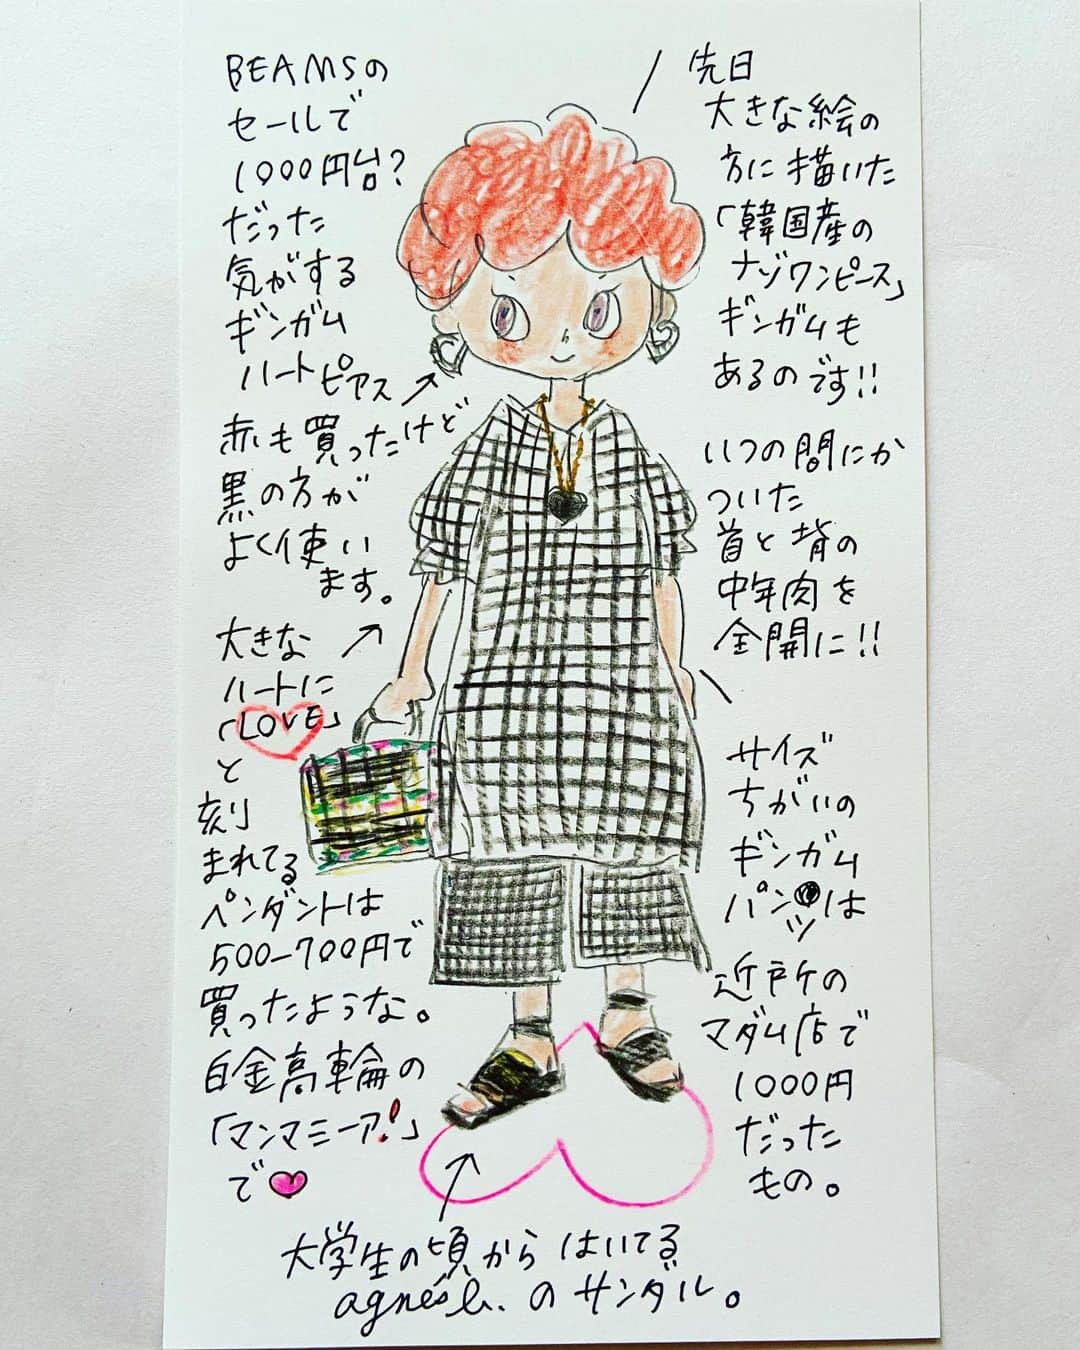 BEAMSの
セールで
1000円台?
だった
気がする
ギンガム
ハートピアス
赤も買ったけど
黒の方が
よく使い
ます。
大きな
ハートに
「LOVE」
と
刻
まれてる
ペンダントは
500-700円で
買ったような。
白金高輪の
「マンマミーア!」
で
先日
大きな絵の
方に描いた
「韓国産の
ナゾワンピース」
ギンガムも
あるのです!!
いつの間にか
ついた
首と背の
中年肉を
全開に!!
サイズ
ちがいの
ギンガム
パンツは
近所の
マダム店で
1000円
だった
もの。
大学生の頃からはいてる
agnès b. のサンダル。